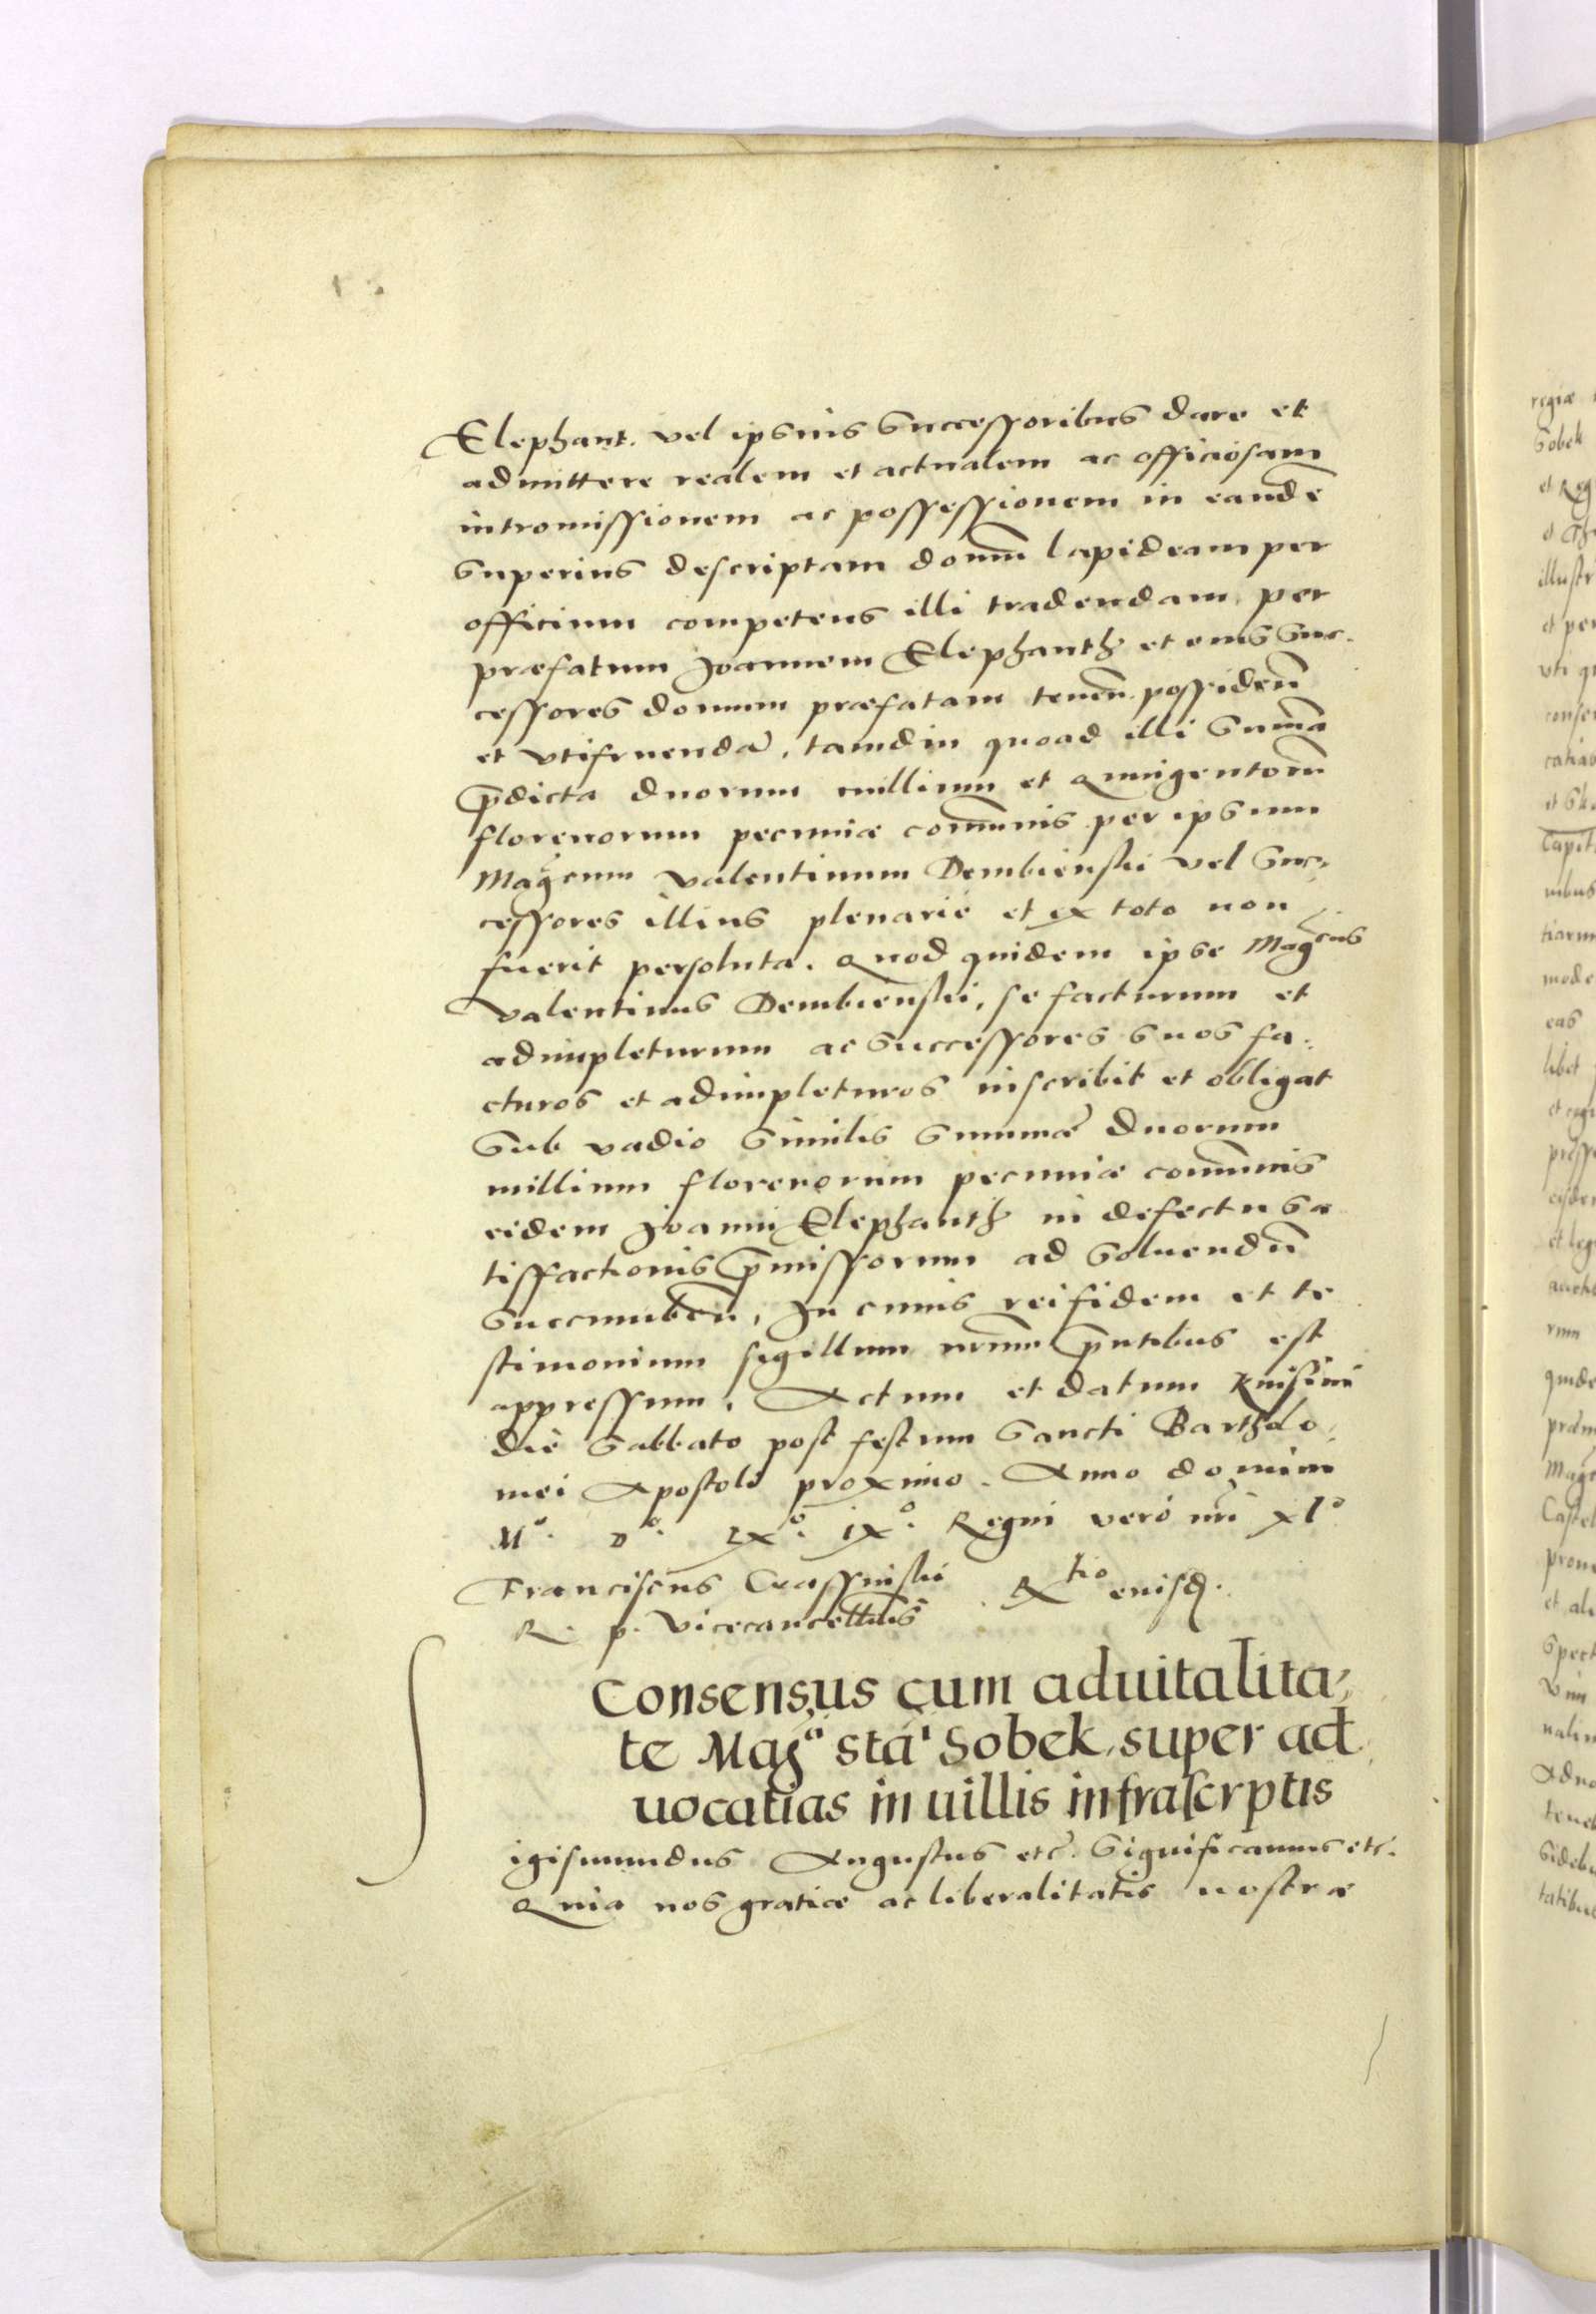 Elephant. vel ipsius successoribus dare et
admittere realem et actualem ac officiosam
intromissionem ac possessionem in eandē
superius descriptam domū lapideam per
officium competens illi tradendam, per
præfatum Joannem Elephanth et eius suc-
cessores domum præfatam tenen̄. possiden̄
et vtifruendā, tamdiu quoad illi sum̄a
p̄dicta duorum millium et Quingentorū
florenorum pecuniæ com̄unis per ipsum
Mag̃cum Valentinum Dembienski vel suc-
cessores illius plenarie et ex toto non
fuerit persoluta. Quod quidem ipse Mag̃cus
Valentinus Dembienski, se facturum et
adimpleturum ac successores suos fa-
cturos et adimpleturos inscribit et obligat
Sub vadio similis summæ duorum
millium florenorum pecuniæ com̄unis
eidem Joanni Elephanth in defectu sa
tisfactionis p̄missorum ad soluendū
succumben̄, In cuius rei fidem et te
stimonium sigillum nr̄um p̄ntibus est
appressum. Actum et datum Knisini
die Sabbato post festum Sancti Bartholo-
mei Apostoli proximo. Anno domini
Mº. Dº. LXº. IXº. Regni vero nr̃i XLº
Franciscus Crassinski Rtio eiusd.
R. p. Vicecancellarius
Consensus cum aduitalita-
te Magᶜᵃ sta' Sobek, super ad
uocatias in uillis infrascrptis
Sigismundus Augustus etc̃. Significamus etc̃.
Quia nos gratiæ ac liberalitatis nostræ